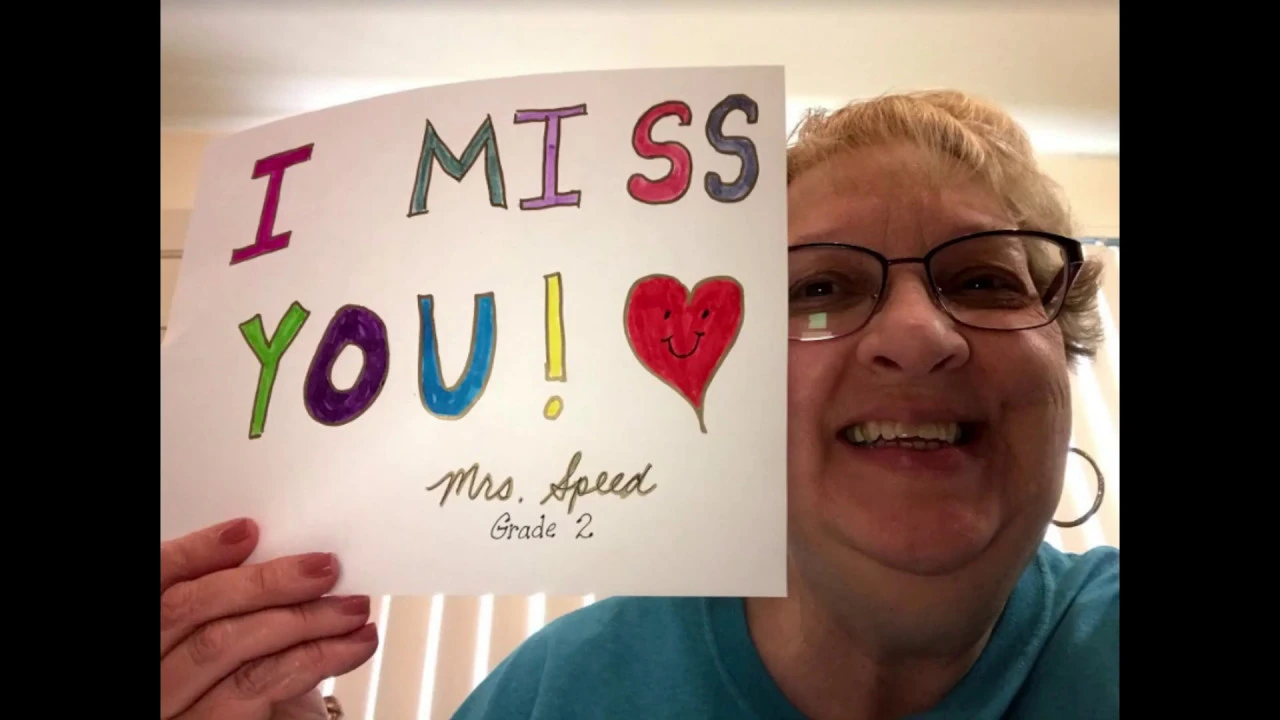 I MISS
YOU!
Mrs. Speed
Grade 2